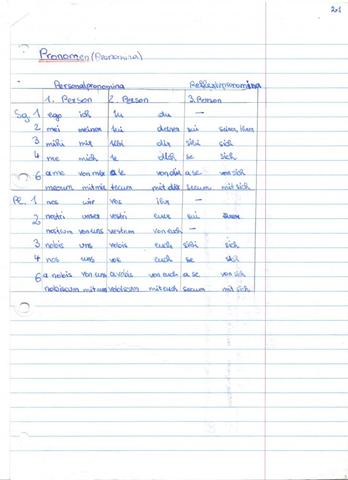 Pronomen (Pronomina)
Personalpronomina Reflexivpronomina
1. Person 2. Person 3. Person
Sg. 1 ego ich tu du –
2 mei meiner tui deiner sui seiner, ihrer
3 mihi mir tibi dir sibi sich
4 me mich te dich se sich
6 a me von mir a te von dir a se von sich
mecum mit mir tecum mit dir secum mit sich
Pl. 1 nos wir vos ihr –
2 nostri unser vestri euer sui
nostrum von uns vestrum von euch –
3 nobis uns vobis euch sibi sich
4 nos uns vos euch se sich
6 a nobis von uns a vobis von euch a se von sich
nobiscum mit uns vobiscum mit euch secum mit sich